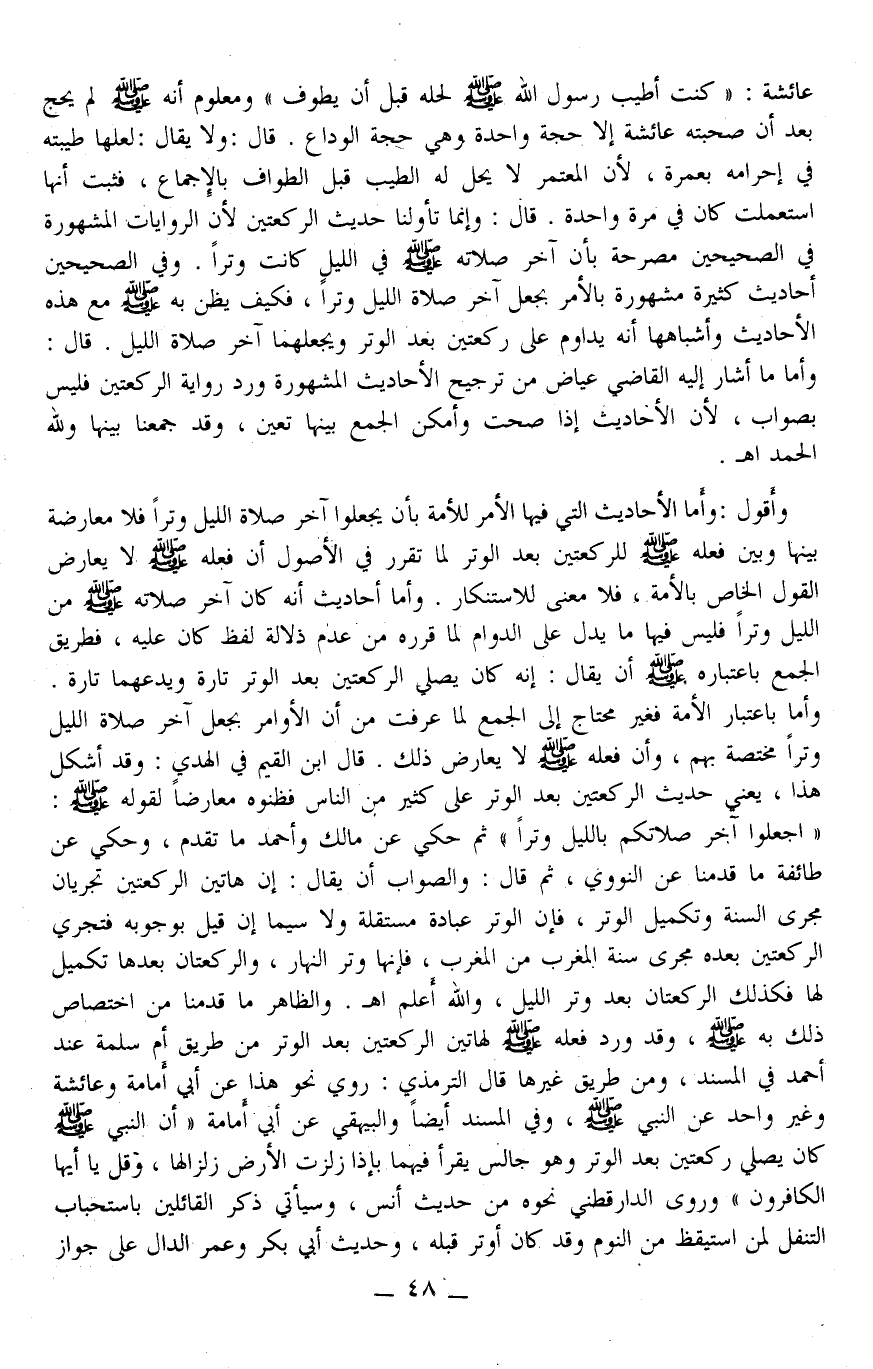 عائشة : « كنت أطيب رسول الله ﷺ لحله قبل أن يطوف » ومعلوم أنه ﷺ لم يحج
بعد أن صحبته عائشة إلا حجة واحدة وهي حجة الوداع . قال :ولا يقال :لعلها طيبته
في إحرامه بعمرة ، لأن المعتمر لا يحل له الطيب قبل الطواف بالإجماع ، فثبت أنها
استعملت كان في مرة واحدة . قال : وإنما تأولنا حديث الركعتين لأن الروايات المشهورة
في الصحيحين مصرحة بأن آخر صلاته ﷺ في الليل كانت وتراً . وفي الصحيحين
أحاديث كثيرة مشهورة بالأمر بجعل آخر صلاة الليل وتراً ، فكيف يظن به ﷺ مع هذه
الأحاديث وأشباهها أنه يداوم على ركعتين بعد الوتر ويجعلهما آخر صلاة الليل . قال :
وأما ما أشار إليه القاضي عياض من ترجيح الأحاديث المشهورة ورد رواية الركعتين فليس
بصواب ، لأن الأحاديث إذا صحت وأمكن الجمع بينها تعين ، وقد جمعنا بينها ولله
الحمد اهـ .
وأقول :وأما الأحاديث التي فيها الأمر للأمة بأن يجعلوا آخر صلاة الليل وتراً فلا معارضة
بينها وبين فعله ﷺ للركعتين بعد الوتر لما تقرر في الأصول أن فعله ﷺ لا يعارض
القول الخاص بالأمة ، فلا معنى للاستنكار . وأما أحاديث أنه كان آخر صلاته ﷺ من
الليل وتراً فليس فيها ما يدل على الدوام لما قرره من عدم دلالة لفظ كان عليه ، فطريق
الجمع باعتباره ﷺ أن يقال : إنه كان يصلي الركعتين بعد الوتر تارة ويدعهما تارة .
وأما باعتبار الأمة فغير محتاج إلى الجمع لما عرفت من أن الأوامر بجعل آخر صلاة الليل
وتراً مختصة بهم ، وأن فعله ﷺ لا يعارض ذلك . قال ابن القيم في الهدي : وقد أشكل
هذا ، يعني حديث الركعتين بعد الوتر على كثير من الناس فظنوه معارضاً لقوله ﷺ :
« اجعلوا آخر صلاتكم بالليل وتراً » ثم حكي عن مالك وأحمد ما تقدم ، وحكي عن
طائفة ما قدمنا عن النووي ، ثم قال : والصواب أن يقال : إن هاتين الركعتين تجريان
مجرى السنة وتكميل الوتر ، فإن الوتر عبادة مستقلة ولا سيما إن قيل بوجوبه فتجري
الركعتين بعده مجرى سنة المغرب من المغرب ، فإنها وتر النهار ، والركعتان بعدها تكميل
لها فكذلك الركعتان بعد وتر الليل ، والله أعلم اهـ . والظاهر ما قدمنا من اختصاص
ذلك به ﷺ ، وقد ورد فعله ﷺ لهاتين الركعتين بعد الوتر من طريق أم سلمة عند
أحمد في المسند ، ومن طريق غيرها قال الترمذي : روي نحو هذا عن أبي أمامة وعائشة
وغير واحد عن النبي ﷺ ، وفي المسند أيضاً والبيهقي عن أبي أمامة « أن النبي ﷺ
كان يصلي ركعتين بعد الوتر وهو جالس يقرأ فيهما بإذا زلزت الأرض زلزالها ، وقل يا أيها
الكافرون » وروى الدارقطني نحوه من حديث أنس ، وسيأتي ذكر القائلين باستحباب
التنفل لمن استيقظ من النوم وقد كان أوتر قبله ، وحديث أبي بكر وعمر الدال على جواز
ــ ٤٨ ــ